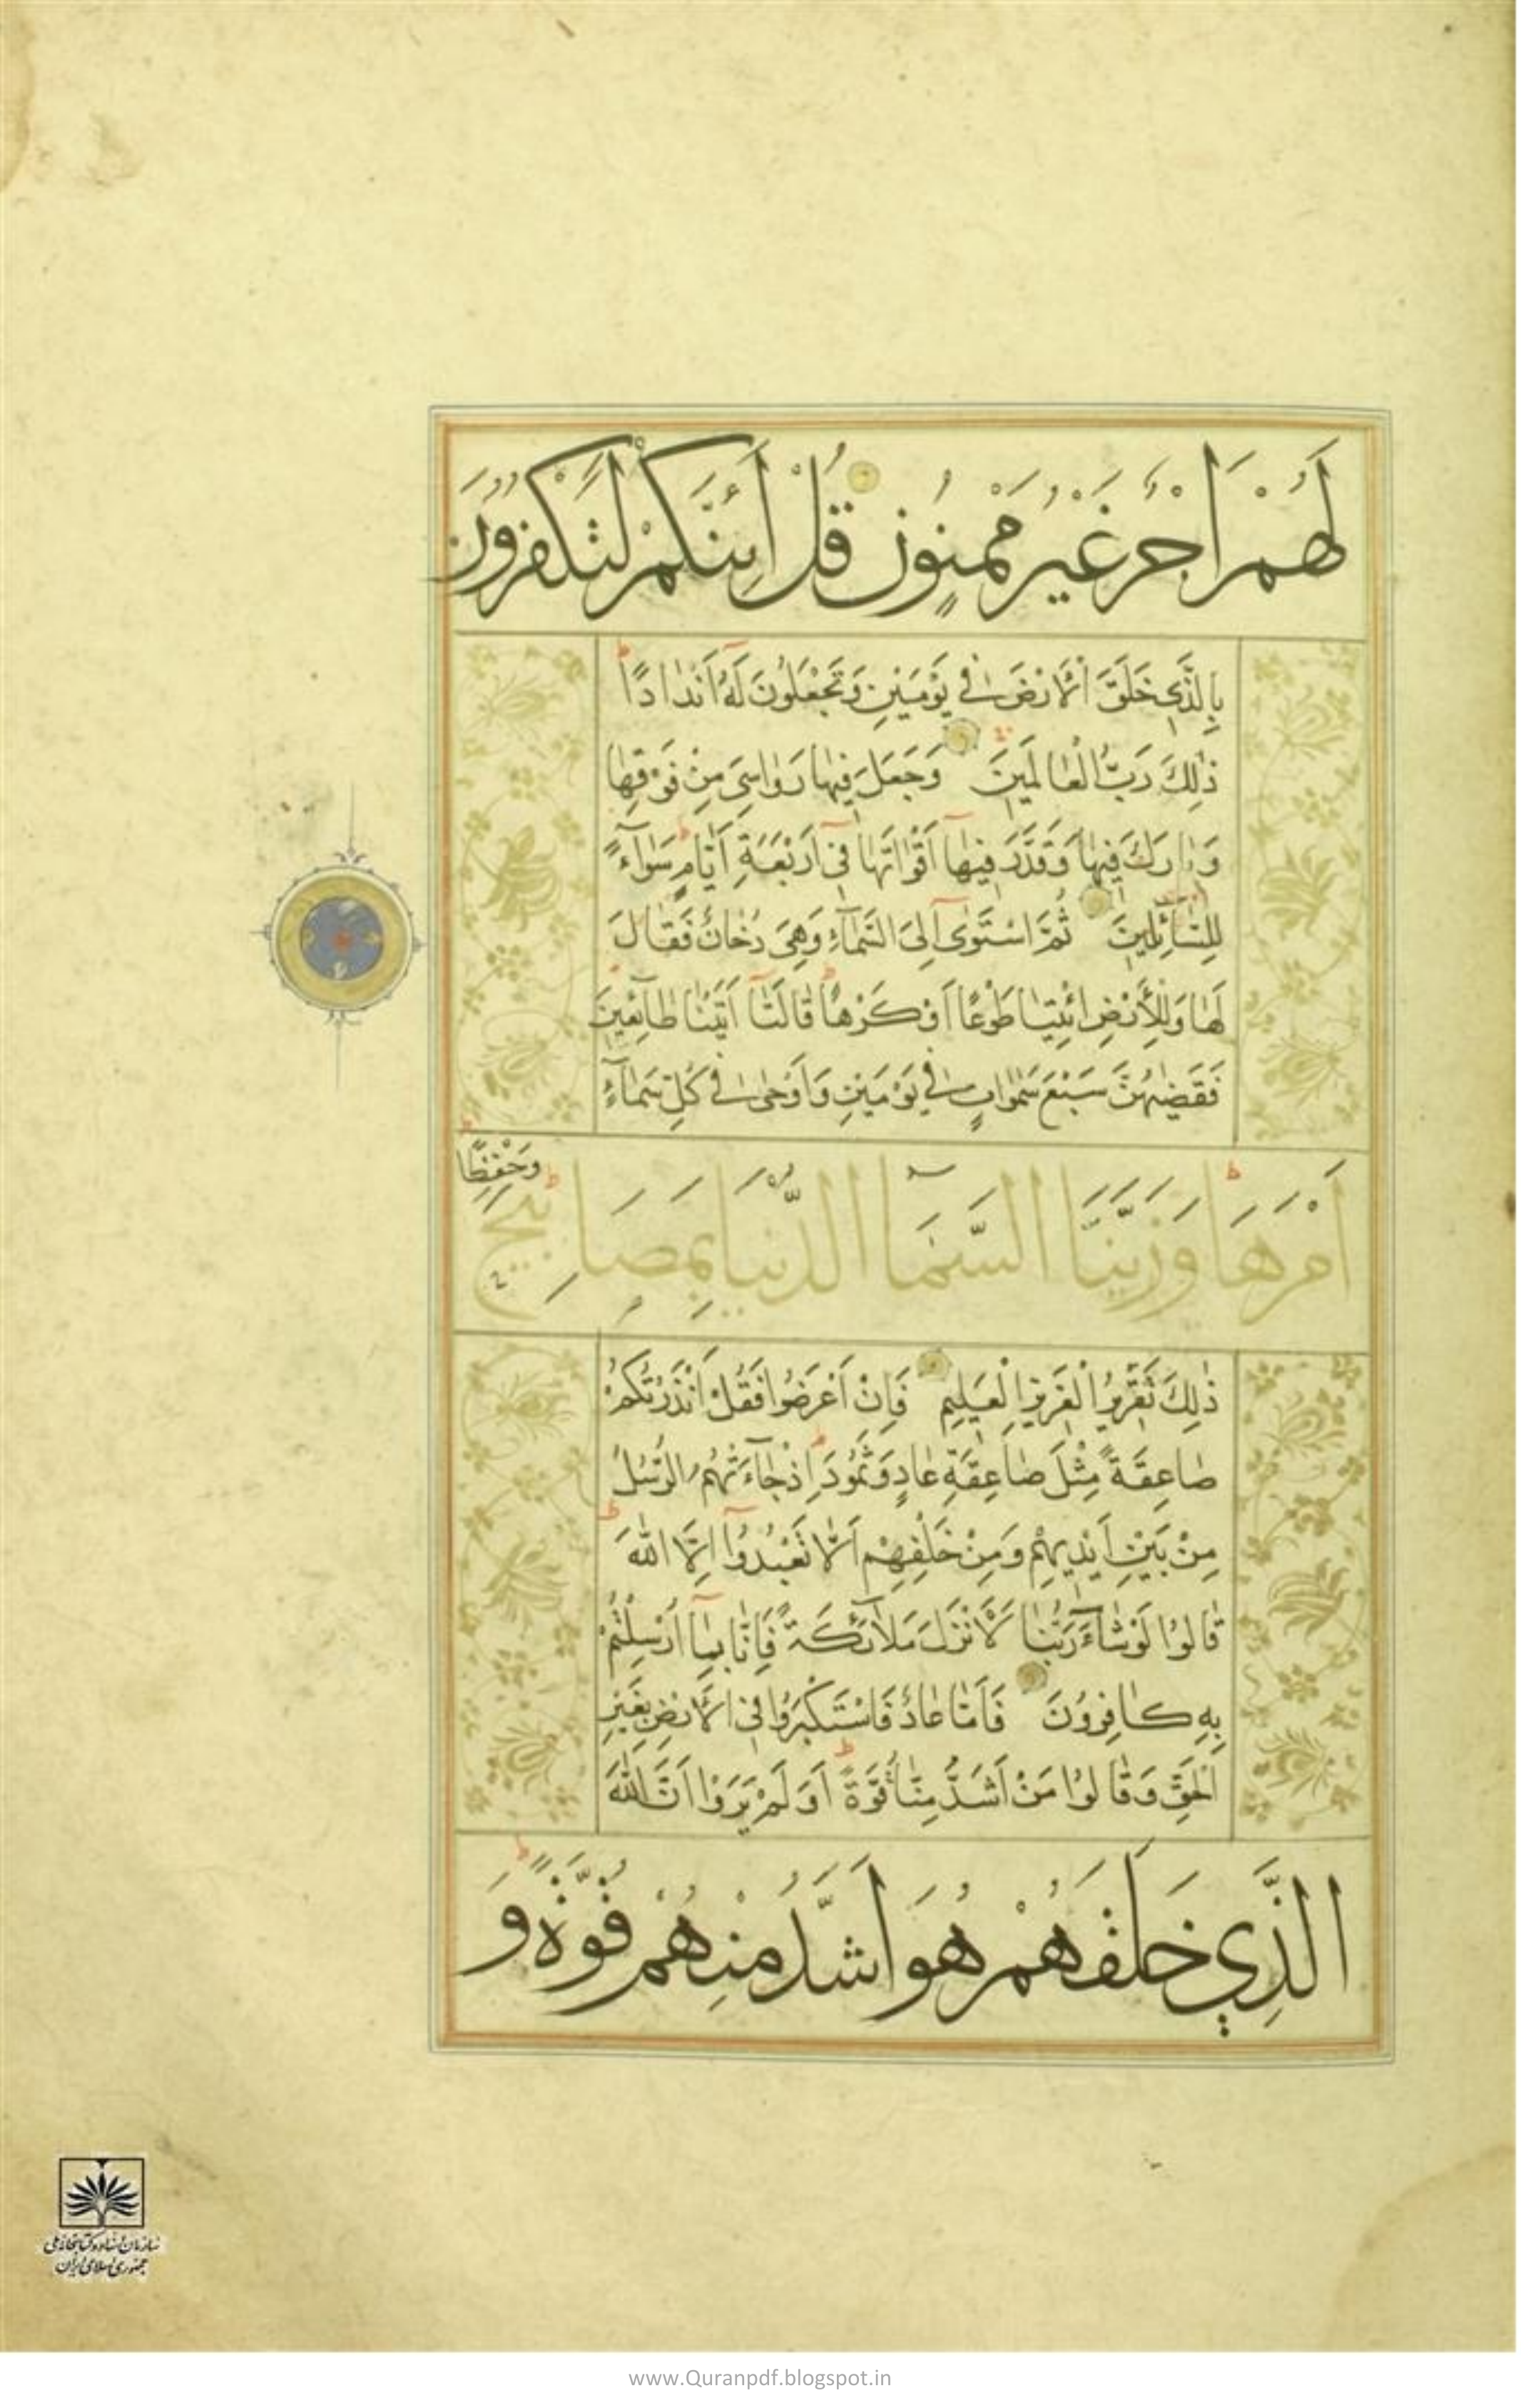 لَهُمْ اَجْرٌ غَيْرُ مَمْنُونٍ قُلْ اَئِنَّكُمْ لَتَكْفُرُونَ
بِالَّذِي خَلَقَ الْاَرْضَ فِي يَوْمَيْنِ وَتَجْعَلُونَ لَهُ اَنْدَادًا
ذٰلِكَ رَبُّ الْعٰالَمِينَ وَجَعَلَ فِيهٰا رَوٰاسِيَ مِنْ فَوْقِهٰا
وَبٰارَكَ فِيهٰا وَقَدَّرَ فِيهٰا اَقْوٰاتَهٰا فِي اَرْبَعَةِ اَيّٰامٍ سَوٰآءً
لِلسّٰآئِلِينَ ثُمَّ اسْتَوٰى اِلَى السَّمٰآءِ وَهِيَ دُخٰانٌ فَقٰالَ
لَهٰا وَلِلْاَرْضِ ائْتِيٰا طَوْعًا اَوْ كَرْهًا قٰالَتٰا اَتَيْنٰا طٰآئِعِينَ
فَقَضٰيهُنَّ سَبْعَ سَمٰوٰاتٍ فِي يَوْمَيْنِ وَاَوْحٰى فِي كُلِّ سَمٰآءٍ
اَمْرَهَا وَزَيَّنَّا السَّمَآ الدُّنْيَا بِمَصَابِيحَ
وَحِفْظًا
ذٰلِكَ تَقْدِيرُ الْعَزِيزِ الْعَلِيمِ فَاِنْ اَعْرَضُوا فَقُلْ اَنْذَرْتُكُمْ
صٰاعِقَةً مِثْلَ صٰاعِقَةِ عٰادٍ وَثَمُودَ اِذْ جٰآءَتْهُمُ الرُّسُلُ
مِنْ بَيْنِ اَيْدِيهِمْ وَمِنْ خَلْفِهِمْ اَلّٰا تَعْبُدُوٓا اِلَّا اللّٰهَ
قٰالُوا لَوْ شٰآءَ رَبُّنٰا لَاَنْزَلَ مَلٰآئِكَةً فَاِنّٰا بِمٰٓا اُرْسِلْتُمْ
بِهِ كٰافِرُونَ فَاَمّٰا عٰادٌ فَاسْتَكْبَرُوا فِي الْاَرْضِ بِغَيْرِ
الْحَقِّ وَقٰالُوا مَنْ اَشَدُّ مِنّٰا قُوَّةً اَوَ لَمْ يَرَوْا اَنَّ اللّٰهَ
الَّذِي خَلَقَهُمْ هُوَ اَشَدُّ مِنْهُمْ قُوَّةً وَ
سازمان اسناد و کتابخانه ملی
جمهوری اسلامی ایران
www.Quranpdf.blogspot.in